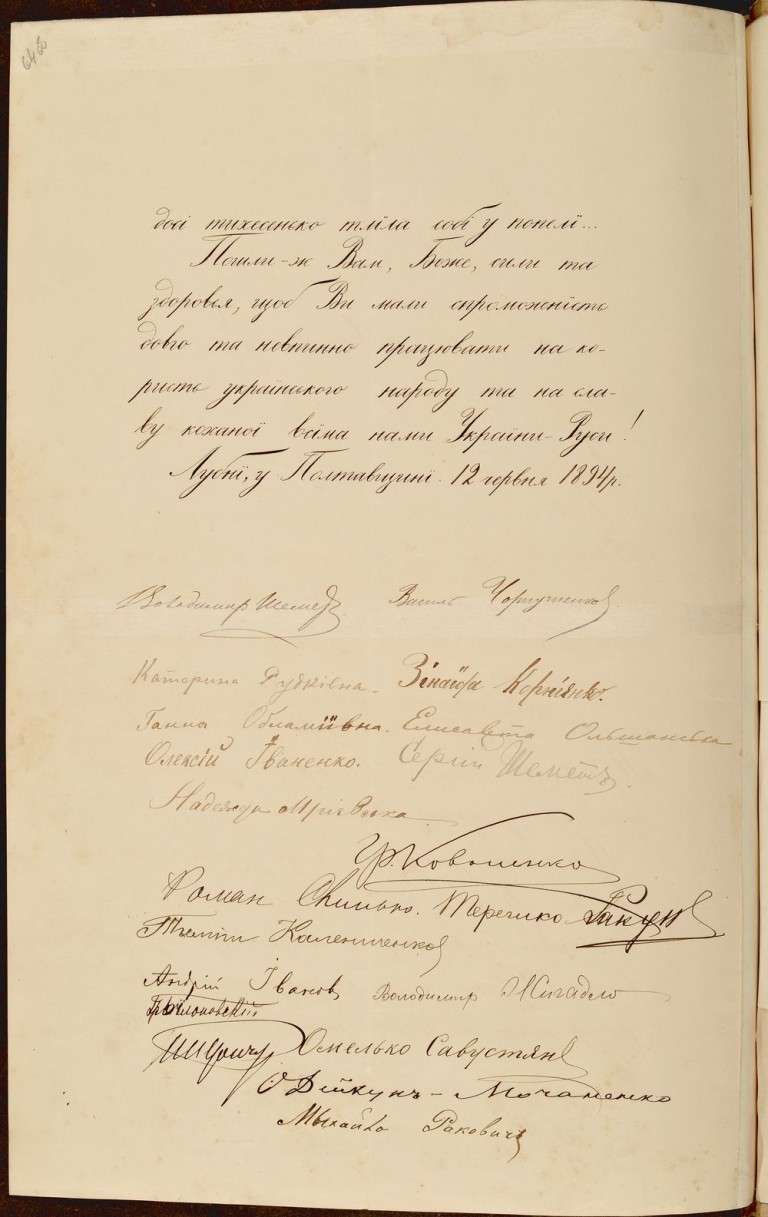 досі тихесенько тліла собі у попелі...
Пошли-ж Вам, Боже, сили та
здоровья, щоб Ви мали спроможність
довго та невпинно працювати на ко-
ристь українського народу та на сла-
ву коханої всіма нами України-Руси!
Лубні, у Полтавщині. 12 червня 1894 р.
Володимир Шемет Василь
Катерина Рудківна. Зінаїда Корніенко.
Ганна Елисавета Ольшанська
Олексій Іваненко. Сергій Шеметъ.
Надежда
Гр. Коваленко
Роман Терешко
Калениченко
Андрій Іванов Володимир Жигадло
Омелько Савустян
О Дейкунъ-Мочаненко
Мыхайло Раковичъ